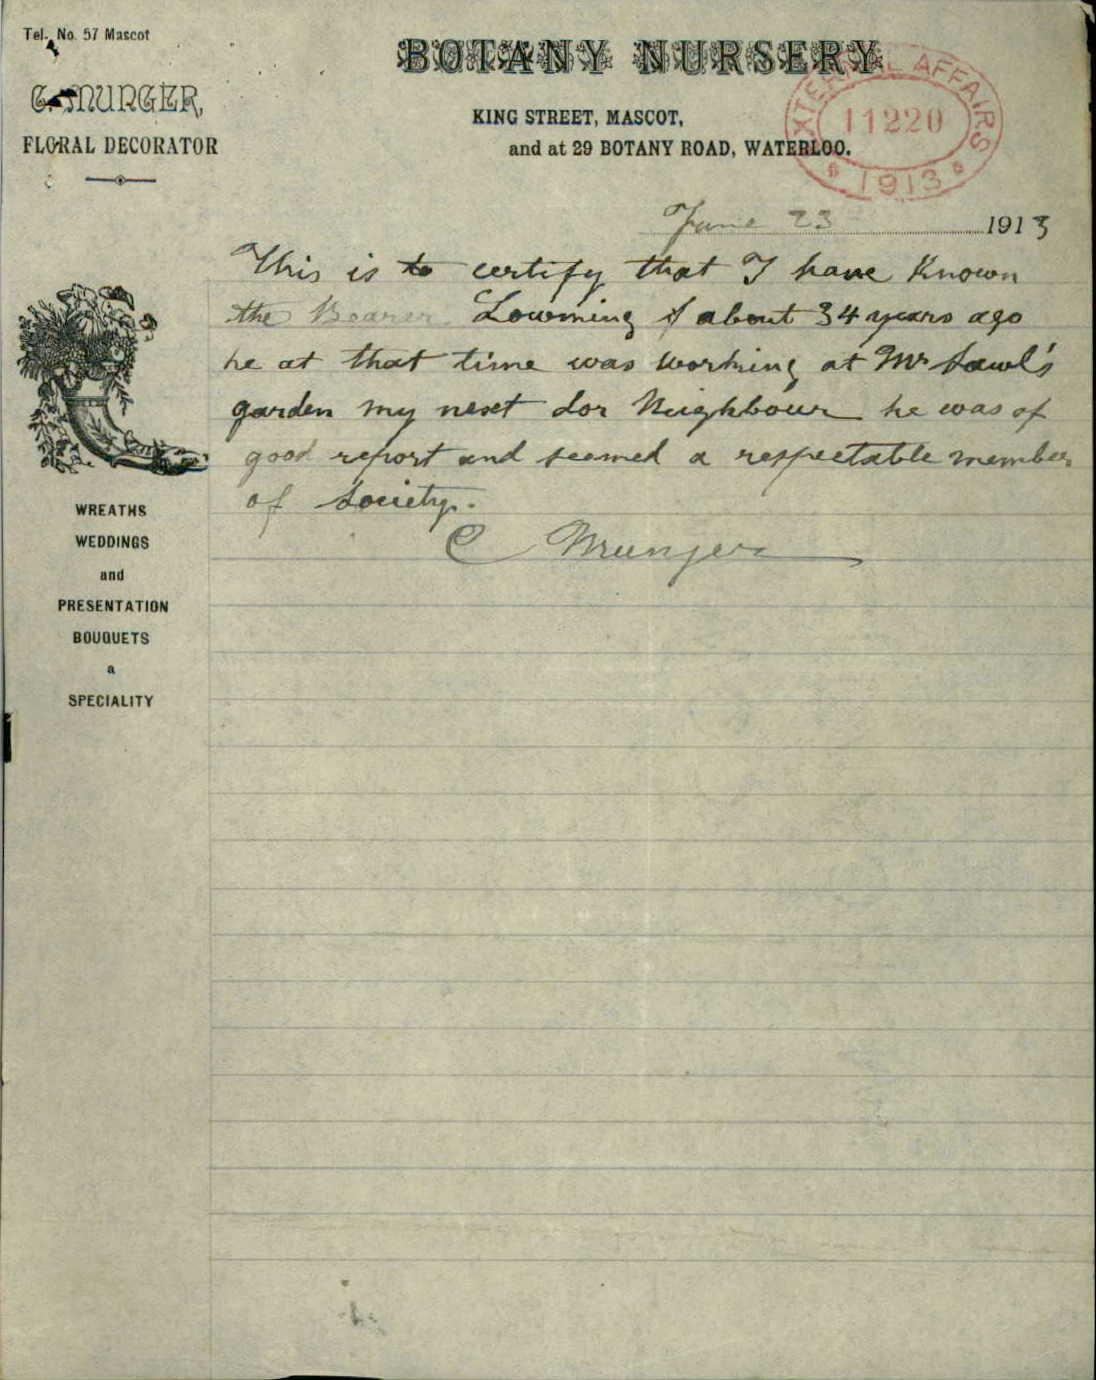 Tel. No. 57 Mascot
BOTANY NURSERY
C. MUNGER,
FLORAL DECORATOR
KING STREET, MASCOT,
and at 29 BOTANY ROAD, WATERLOO.
EXTERNAL AFFAIRS
11220
1913
June 23 1913
This is to certify that I have Known
the Bearer about 34 years ago
he at that time was working at Mr Sawl's
garden my next dor Neighbour he was of
good report and seemed a respectable member
of Society.
C Munger
WREATHS
WEDDINGS
and
PRESENTATION
BOUQUETS
a
SPECIALITY